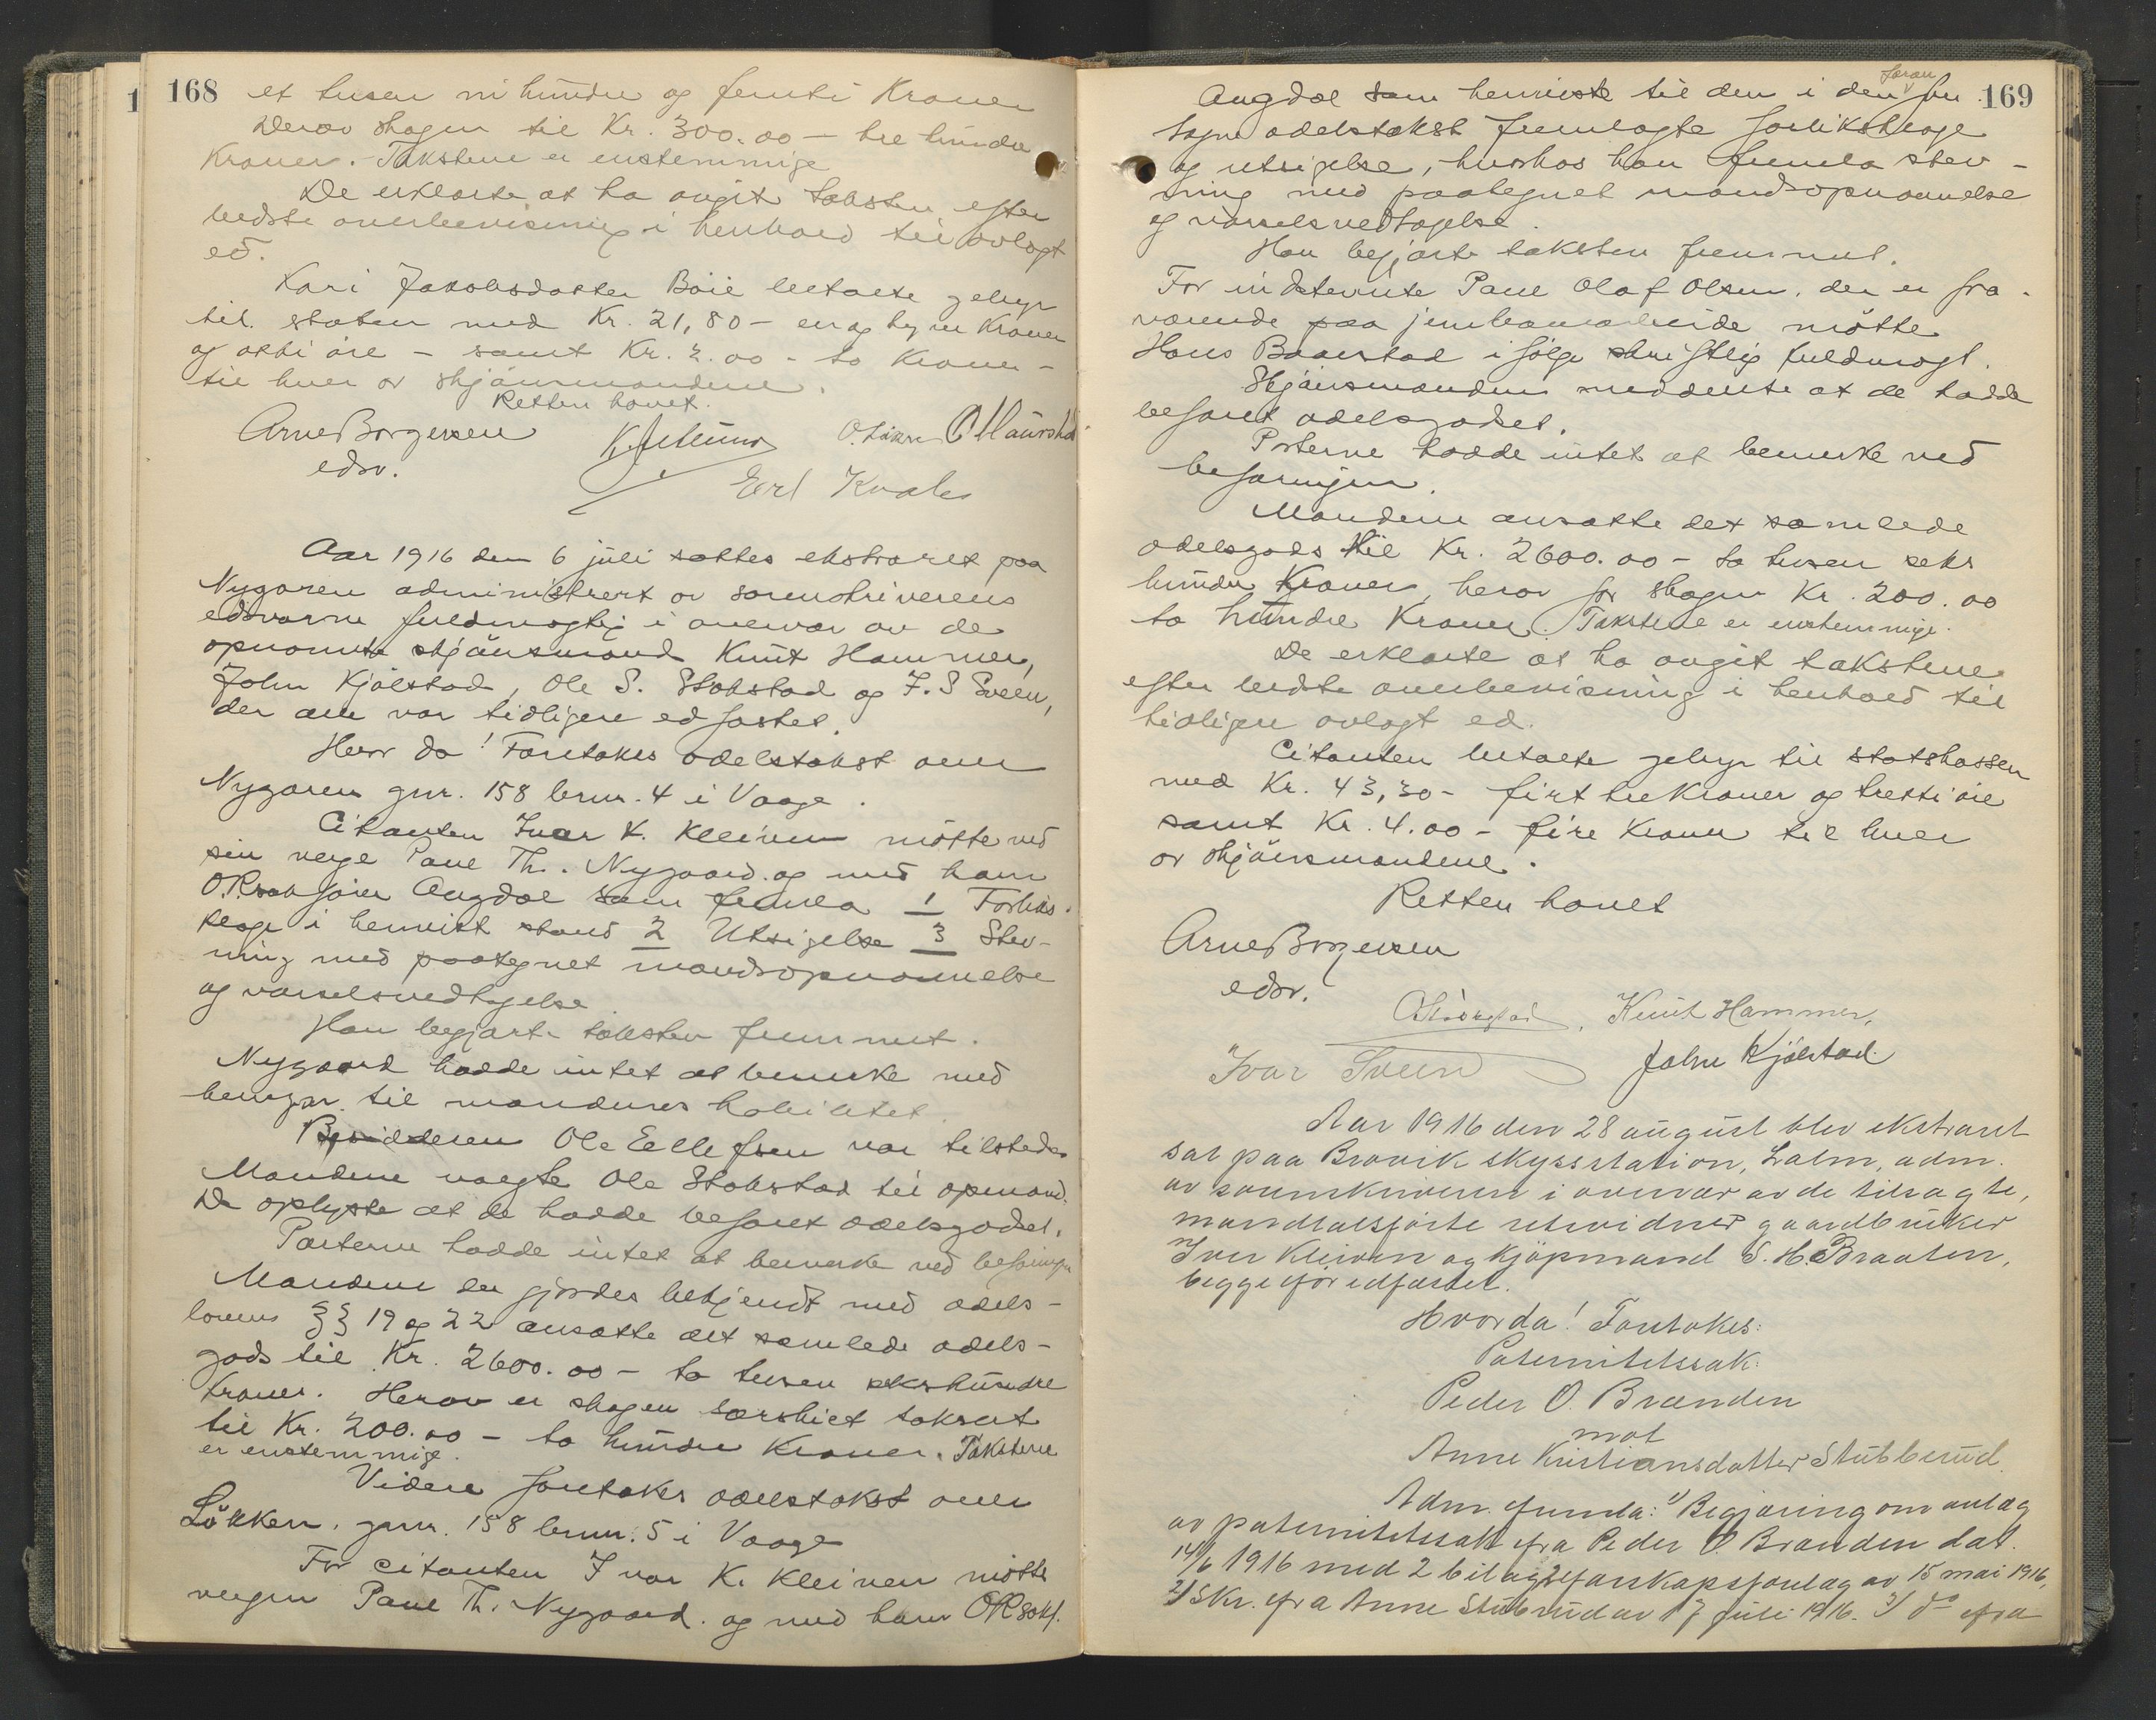 168
et tusen ni hundre og femti Kroner
Derav skogen til Kr. 300.00 – tre hundre
Kroner. – Takstene er enstemmige
De erklærte at ha avgit taksten efter
bedste overbevisning i henhold til avlagt
ed.
Kari Jakobsdatter Böie betalte gebyr
til staten med Kr. 21,80 – en og tyve Kroner
og otti öre – samt Kr. 2.00 – to Kroner –
til hver av skjönsmændene.
Retten hævet.
Arne Borgersen
edsv.
Erl Kvale
Aar 1916 den 6 juli sattes ekstraret paa
Nygaren administrert av sorenskriverens
edsvorne fuldmægtig i overvær av de
opnævnte skjönsmænd Knut Hammer,
John Kjölstad, Ole S. Stokstad og I. S Sveen,
der alle var tidligere edfæstet.
Hvor da! Foretokes odelstakst over
Nygaren gnr. 158 brnr. 4 i Vaage.
Citanten Ivar K. Kleiven mötte ved
sin verge Paul Th. Nygaard og med ham
O.R.sakförer Angdal som fremla 1 Forliks-
klage i henvist stand 2 Utsigelse 3 Stev-
ning med paategnet mandsopnævnelse
og varselsvedtagelse
Han begjærte taksten fremmet.
Nygaard hadde intet at bemerke med
hensyn til mændenes habilitet.
Besidderen Ole Ellefsen var tilstede.
Mændene valgte Ole Stokstad til opmand.
De oplyste at de hadde befaret odelsgodset.
Parterne hadde intet at bemerke ved befaringen
Mændene der gjordes bekjendt med odels-
lovens §§ 19 og 22 ansatte det samlede odels-
gods til Kr. 2600.00 – to tusen sekshundre
kroner. Herav er skogen særskilt taksert
til Kr. 200.00 – to hundre Kroner. Takstene
er enstemmige.
Videre foretokes odelstakst over
Lökken, gnr. 158 brnr. 5 i Vaage
For citanten Ivar K. Kleiven mötte
vergen Paul Th. Nygaard og med ham ORsakf.
169
Angdal som henviste til den i den foran
sagne odelstakst fremlagte forliksklage
og utsigelse, hvorhos han fremla stev-
ning med paategnet mandsopnævnelse
og varselsvedtagelse.
Han begjærte taksten fremmet.
For indstevnte Paul Olaf Olsen, der er fra-
værende paa jernbanearbeide mötte
Hans Baarstad ifölge skriftlig fuldmagt.
Skjönsmændene meddelte at de hadde
befaret odelsgodset.
Parterne hadde intet at bemerke ved
befaringen.
Mændene ansatte det samlede
odelsgods til Kr. 2600.00 – to tusen seks
hundre Kroner, herav for skogen Kr. 200.00
to hundre Kroner. Takstene er enstemmige.
De erklærte at ha avgit takstene
efter bedste overbevisning i henhold til
tidligere avlagt ed.
Citanten betalte gebyr til statskassen
med Kr. 43,30 – firti tre Kroner og tretti öre
samt Kr. 4.00 – fire Kroner til hver
av skjönsmændene.
Retten hævet
Arne Borgersen
edsv.
Knut Hammer,
Ivar Sveen John Kjölstad
Aar 1916 den 28 august blev ekstraret
sat paa Brovik skysstation, Lalm, adm.
av sorenskriveren i overvær av de tilsagte,
mandtalsförte retsvidner gaardbruker
Iver Kleiven og kjöpmand S. H. Braaten,
begge för edfæstet.
Hvorda! Foretokes:
Paternitetssak:
Peder O. Brænden
mot
Anne Kristiansdatter Stubberud.
Adm. fremla: 1) Begjæring om anlæg
av paternitetssak fra Peder O. Brænden dat.
14/6 1916 med 2 bilag farskapsforelæg av 15 mai 1916,
2) Skr. fra Anne Stubrud av 17 juli 1916. 3) do fra